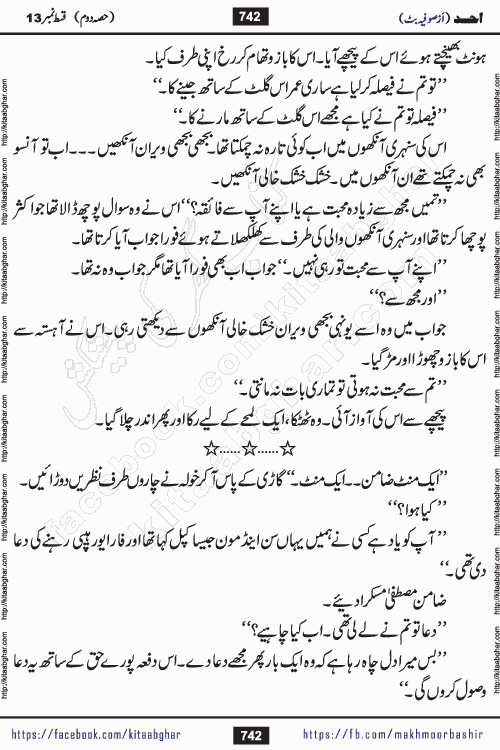 اُحد (از صوفیہ بٹ)
742
(حصہ دوم) قسط نمبر 13
ہونٹ بھینچتے ہوئے اس کے پیچھے آیا۔ اس کا بازو تھام کر رخ اپنی طرف کیا۔
’’تو تم نے فیصلہ کر لیا ہے ساری عمر اس گلٹ کے ساتھ جینے کا۔‘‘
’’فیصلہ تو تم نے کیا ہے مجھے اس گلٹ کے ساتھ مارنے کا۔‘‘
اس کی سنہری آنکھوں میں اب کوئی تارہ نہ چمکتا تھا۔ بجھی بجھی ویران آنکھیں۔۔۔ اب تو آنسو
بھی نہ چمکتے تھے ان آنکھوں میں۔ خشک خشک خالی آنکھیں۔
’’تمہیں مجھ سے زیادہ محبت ہے یا اپنے آپ سے فائقہ؟‘‘ اس نے وہ سوال پوچھ ڈالا تھا جو اکثر
پوچھا کرتا تھا اور سنہری آنکھوں والی کی طرف سے کھلکھلاتے ہوئے فوراً جواب آیا کرتا تھا۔
’’اپنے آپ سے محبت تو رہی نہیں۔‘‘ جواب اب بھی فوراً آیا تھا مگر جواب وہ نہ تھا۔
’’اور مجھ سے؟‘‘
جواب میں وہ اسے یونہی بجھی ویران خشک خالی آنکھوں سے دیکھتی رہی۔ اس نے آہستہ سے
اس کا بازو چھوڑا اور مڑ گیا۔
’’تم سے محبت نہ ہوتی تو تمہاری بات نہ مانتی۔‘‘
پیچھے سے اس کی آواز آئی۔ وہ ٹھٹکا، ایک لمحے کے لیے رکا اور پھر اندر چلا گیا۔
☆......☆......☆
’’ایک منٹ ضامن۔۔ ایک منٹ۔‘‘ گاڑی کے پاس آ کر خولہ نے چاروں طرف نظریں دوڑائیں۔
’’کیا ہوا؟‘‘
’’آپ کو یاد ہے کسی نے ہمیں یہاں سن اینڈ مون جیسا کپل کہا تھا اور فار ایور ہیپی رہنے کی دعا
دی تھی۔‘‘
ضامن مصطفیٰ مسکرا دیئے۔
’’دعا تو تم نے لے لی تھی۔ اب کیا چاہیے؟‘‘
’’بس میرا دل چاہ رہا ہے کہ وہ ایک بار پھر مجھے دعا دے۔ اس دفعہ پورے حق کے ساتھ یہ دعا
وصول کروں گی۔‘‘
https://facebook.com/kitaabghar
742
https://fb.com/makhmoorbashir
http://kitaabghar.com
facebook.com/kitaabghar
kitaabghar.com